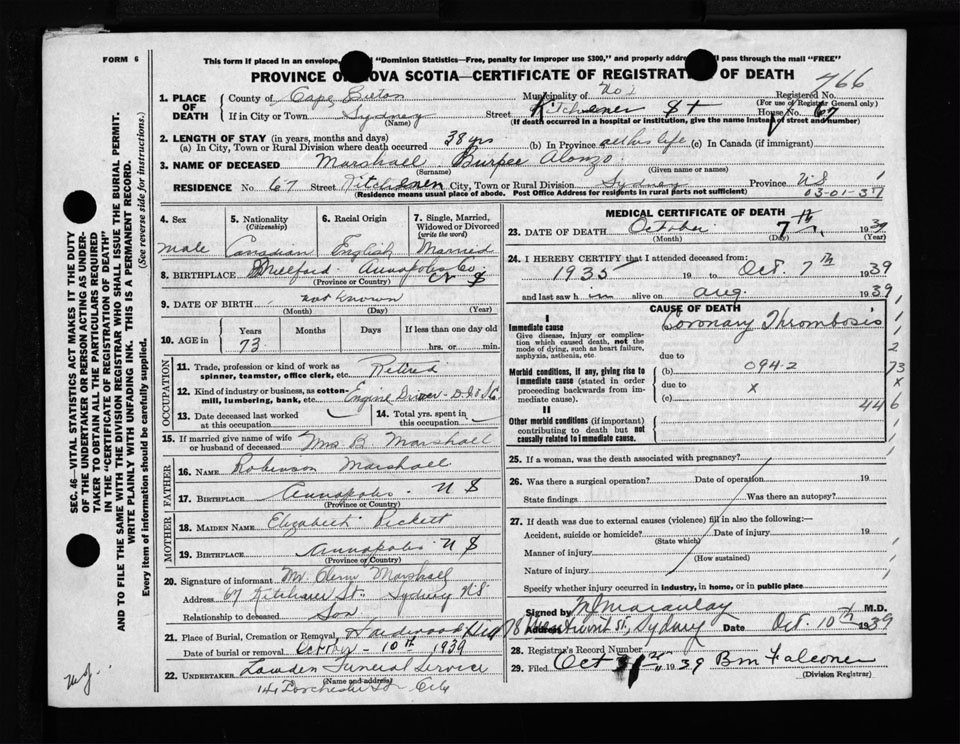 FORM 6
This form if placed in an envelope, "Dominion Statistics—Free, penalty for improper use $300," and properly addre pass through the mail "FREE"
PROVINCE O OVA SCOTIA—CERTIFICATE OF REGISTRAT OF DEATH
766
1. PLACE OF DEATH
County of Cape Breton Municipality of No 2 Registered No.
(For use of Registrar General only)
If in City or Town Sydney Street Kitchener St House No. 67
(Name) (If death occurred in a hospital or institution, give the name instead of street and number)
2. LENGTH OF STAY (in years, months and days)
(a) In City, Town or Rural Division where death occurred 38 yrs (b) In Province all his life (c) In Canada (if immigrant)
3. NAME OF DECEASED Marshall Burpee Alonzo
(Surname) (Given name or names)
RESIDENCE No. 67 Street Kitchener City, Town or Rural Division Sydney Province N S
(Residence means usual place of abode. Post Office Address for residents in rural parts not sufficient) 03-01-311
4. Sex 5. Nationality 6. Racial Origin 7. Single, Married, Widowed or Divorced
(Citizenship) (write the word)
male Canadian English Married
8. BIRTHPLACE Millford Annapolis Co.
(Province or County) N S
9. DATE OF BIRTH not known
(Month) (Day) (Year)
10. AGE in Years Months Days If less than one day old
73 hrs. or min.
OCCUPATION
11. Trade, profession or kind of work as spinner, teamster, office clerk, etc. Retired
12. Kind of industry or business, as cotton-mill, lumbering, bank, etc. Engine Driver
13. Date deceased last worked at this occupation
14. Total yrs. spent in this occupation
15. If married give name of wife or husband of deceased Mrs B Marshall
FATHER
16. NAME Robinson Marshall
17. BIRTHPLACE Annapolis - N S
(Province or County)
MOTHER
18. MAIDEN NAME Elizabeth Pickett
19. BIRTHPLACE Annapolis N S
(Province or County)
20. Signature of informant Mr Marshall
Address 67 Kitchener St. Sydney N.S
Relationship to deceased Son
21. Place of Burial, Cremation or Removal Hardwood Hill
Date of burial or removal October - 10th 1939
22. UNDERTAKER Funeral Service
(Name and address)
141 Dorchester St City
MEDICAL CERTIFICATE OF DEATH
23. DATE OF DEATH October 7th 1939
(Month) (Day) (Year)
24. I HEREBY CERTIFY that I attended deceased from:
1935 19 to Oct. 7th 1939
and last saw him alive on Aug. 1939
CAUSE OF DEATH
I
Immediate cause Coronary Thrombosis
Give disease, injury or complication which caused death, not the mode of dying, such as heart failure, asphyxia, asthenia, etc.
due to
Morbid conditions, if any, giving rise to immediate cause (stated in order proceeding backwards from immediate cause) (b) 094-2
due to x
(c) 446
II
Other morbid conditions (if important) contributing to death but not causally related to immediate cause.
25. If a woman, was the death associated with pregnancy?
26. Was there a surgical operation? Date of operation 19
State findings Was there an autopsy?
27. If death was due to external causes (violence) fill in also the following:—
Accident, suicide or homicide? Date of injury 19
(State which)
Manner of injury
(How sustained)
Nature of injury
Specify whether injury occurred in industry, in home, or in public place
Signed by M.D.
Address 78 Wentworth St., Sydney Date Oct. 10th 1939
28. Registrar's Record Number
29. Filed Oct 31st 1939 B M Falconer
(Division Registrar)
SEC. 46— VITAL STATISTICS ACT MAKES IT THE DUTY
OF THE UNDERTAKER OR PERSON ACTING AS UNDERTAKER TO OBTAIN ALL THE PARTICULARS REQUIRED
IN THE "CERTIFICATE OF REGISTRATION OF DEATH"
AND TO FILE THE SAME WITH THE DIVISION REGISTRAR WHO SHALL ISSUE THE BURIAL PERMIT.
WRITE PLAINLY WITH UNFADING INK. THIS IS A PERMANENT RECORD.
Every item of information should be carefully supplied. (See reverse side for instructions.)